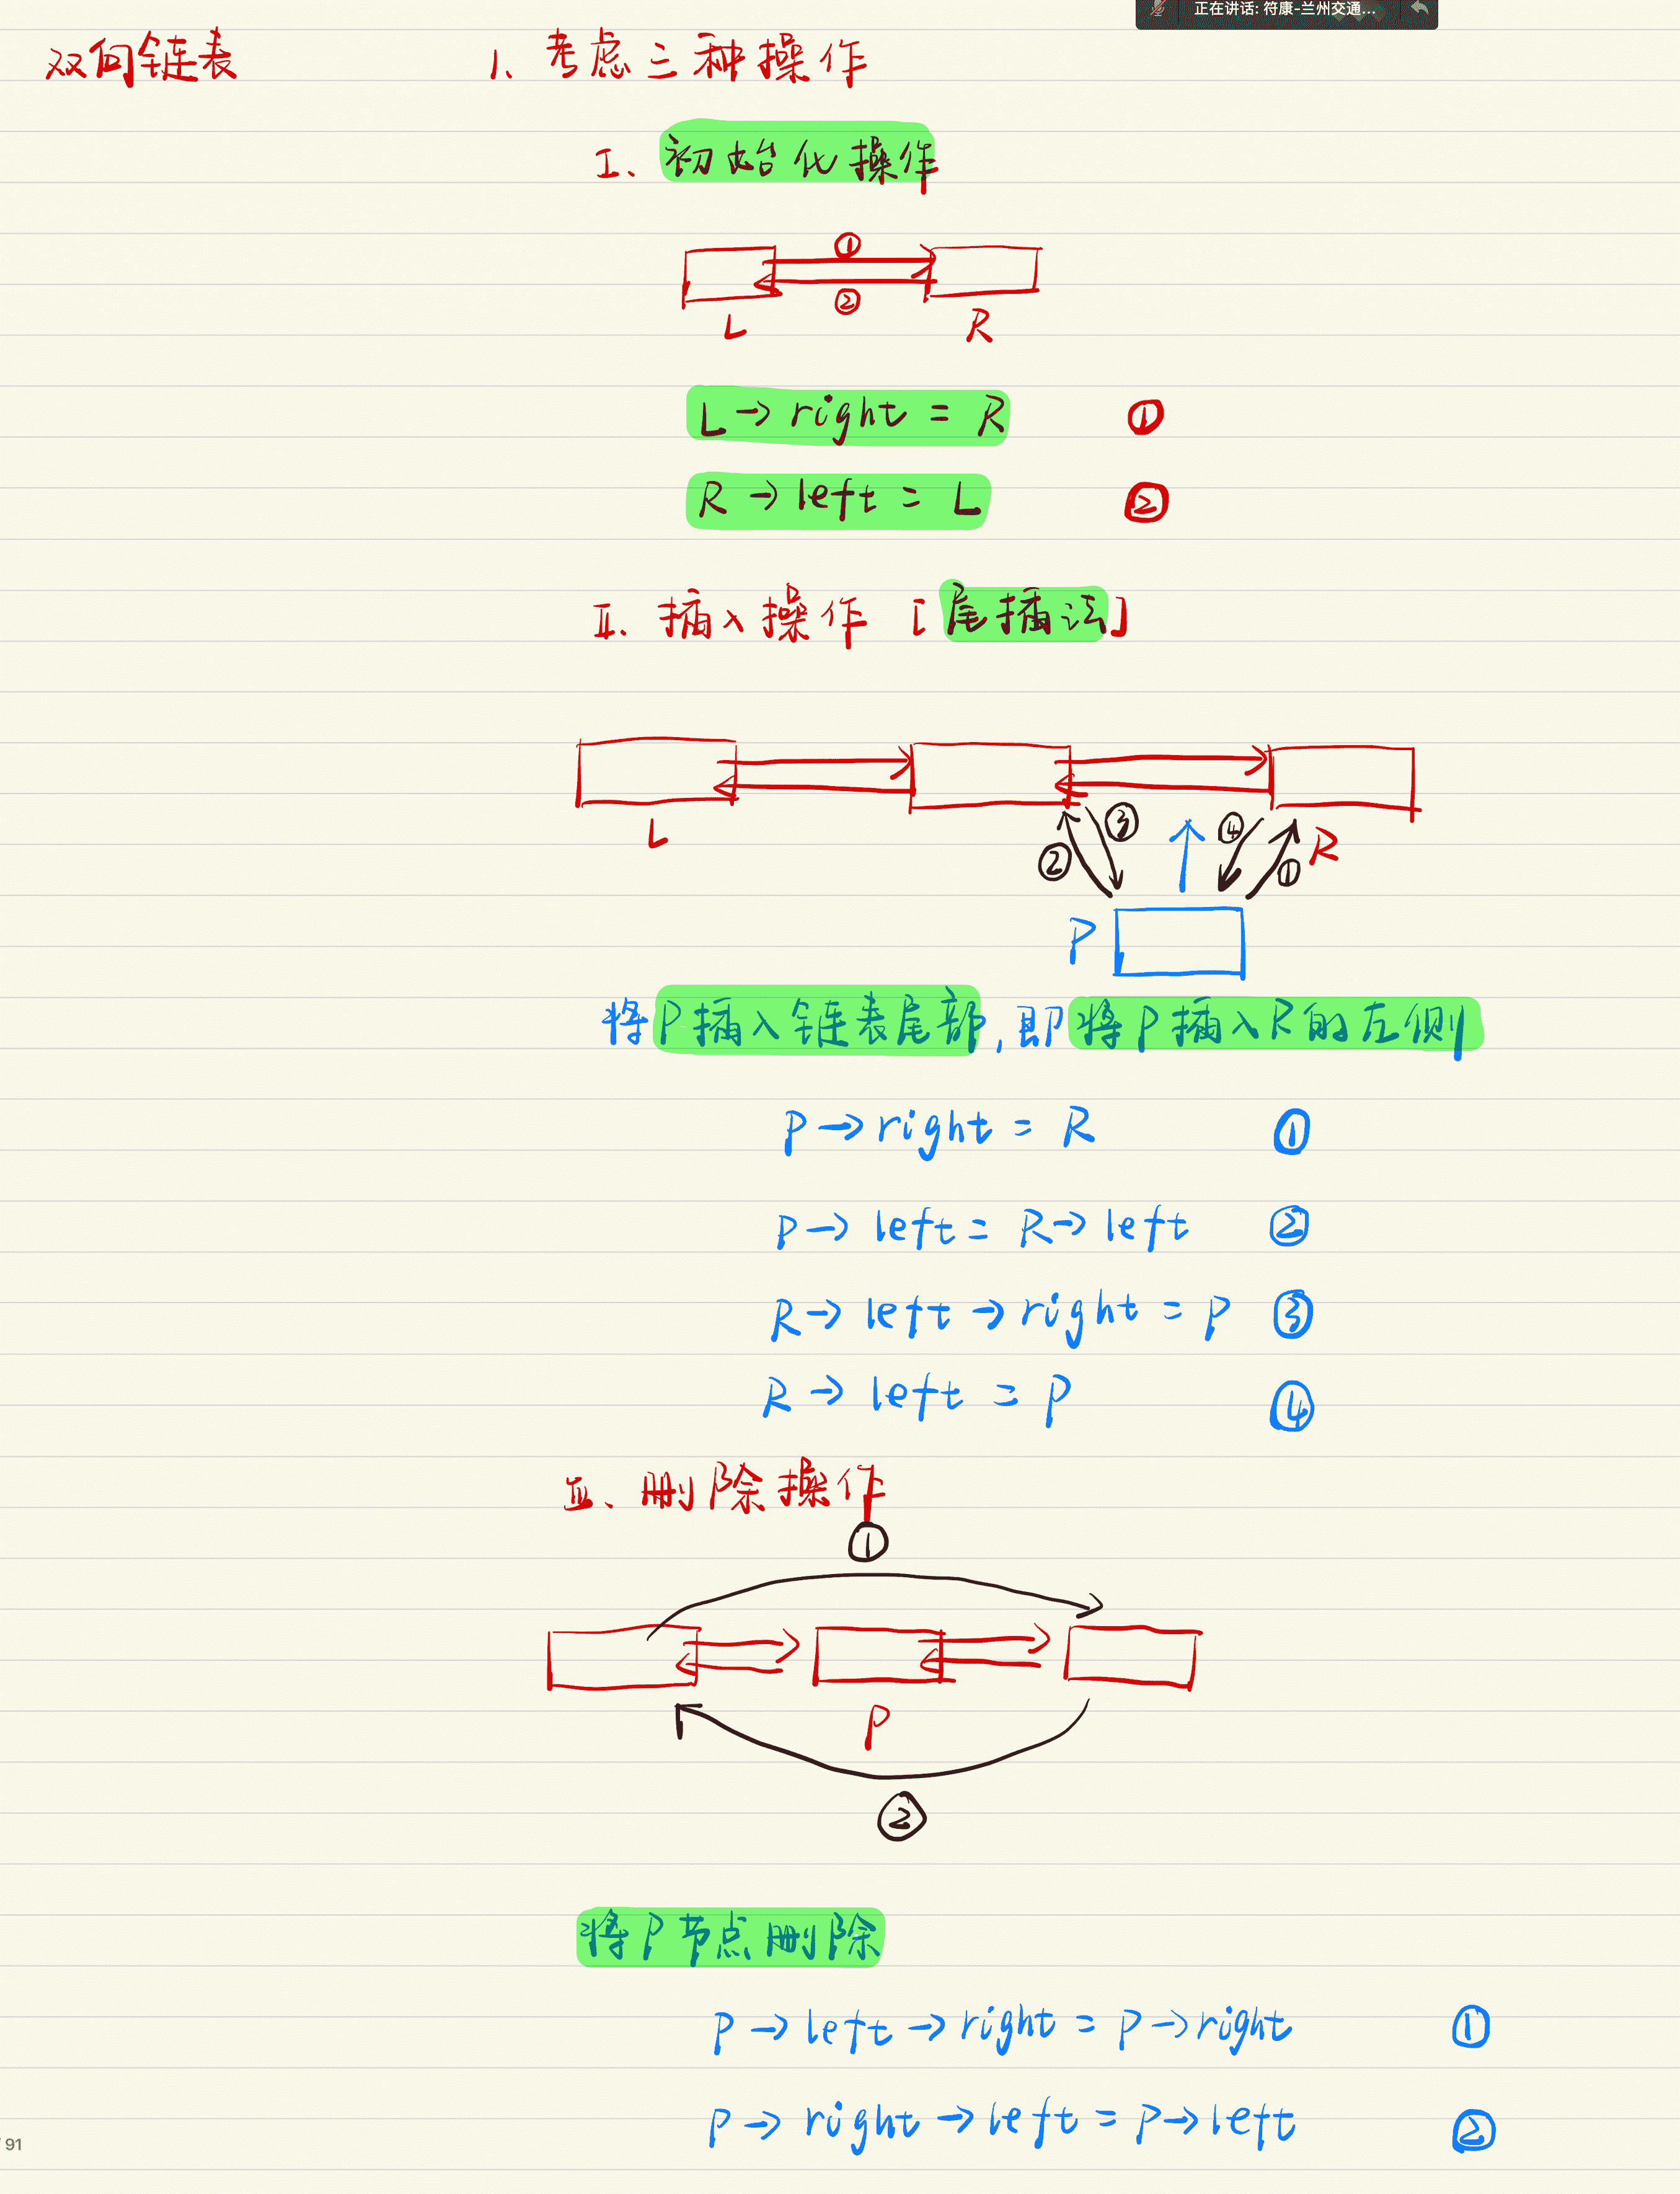 正在讲话: 符康-兰州交通...
双向链表
1、考虑三种操作
I、初始化操作
①
②
L
R
L→right = R ①
R→left = L ②
II、插入操作 [尾插法]
L
② ③ ④ ① R
P
将P插入链表尾部,即将P插入R的左侧
P→right = R ①
P→left = R→left ②
R→left→right = P ③
R→left = P ④
III、删除操作
①
P
②
将P节点删除
P→left→right = P→right ①
P→right→left = P→left ②
91